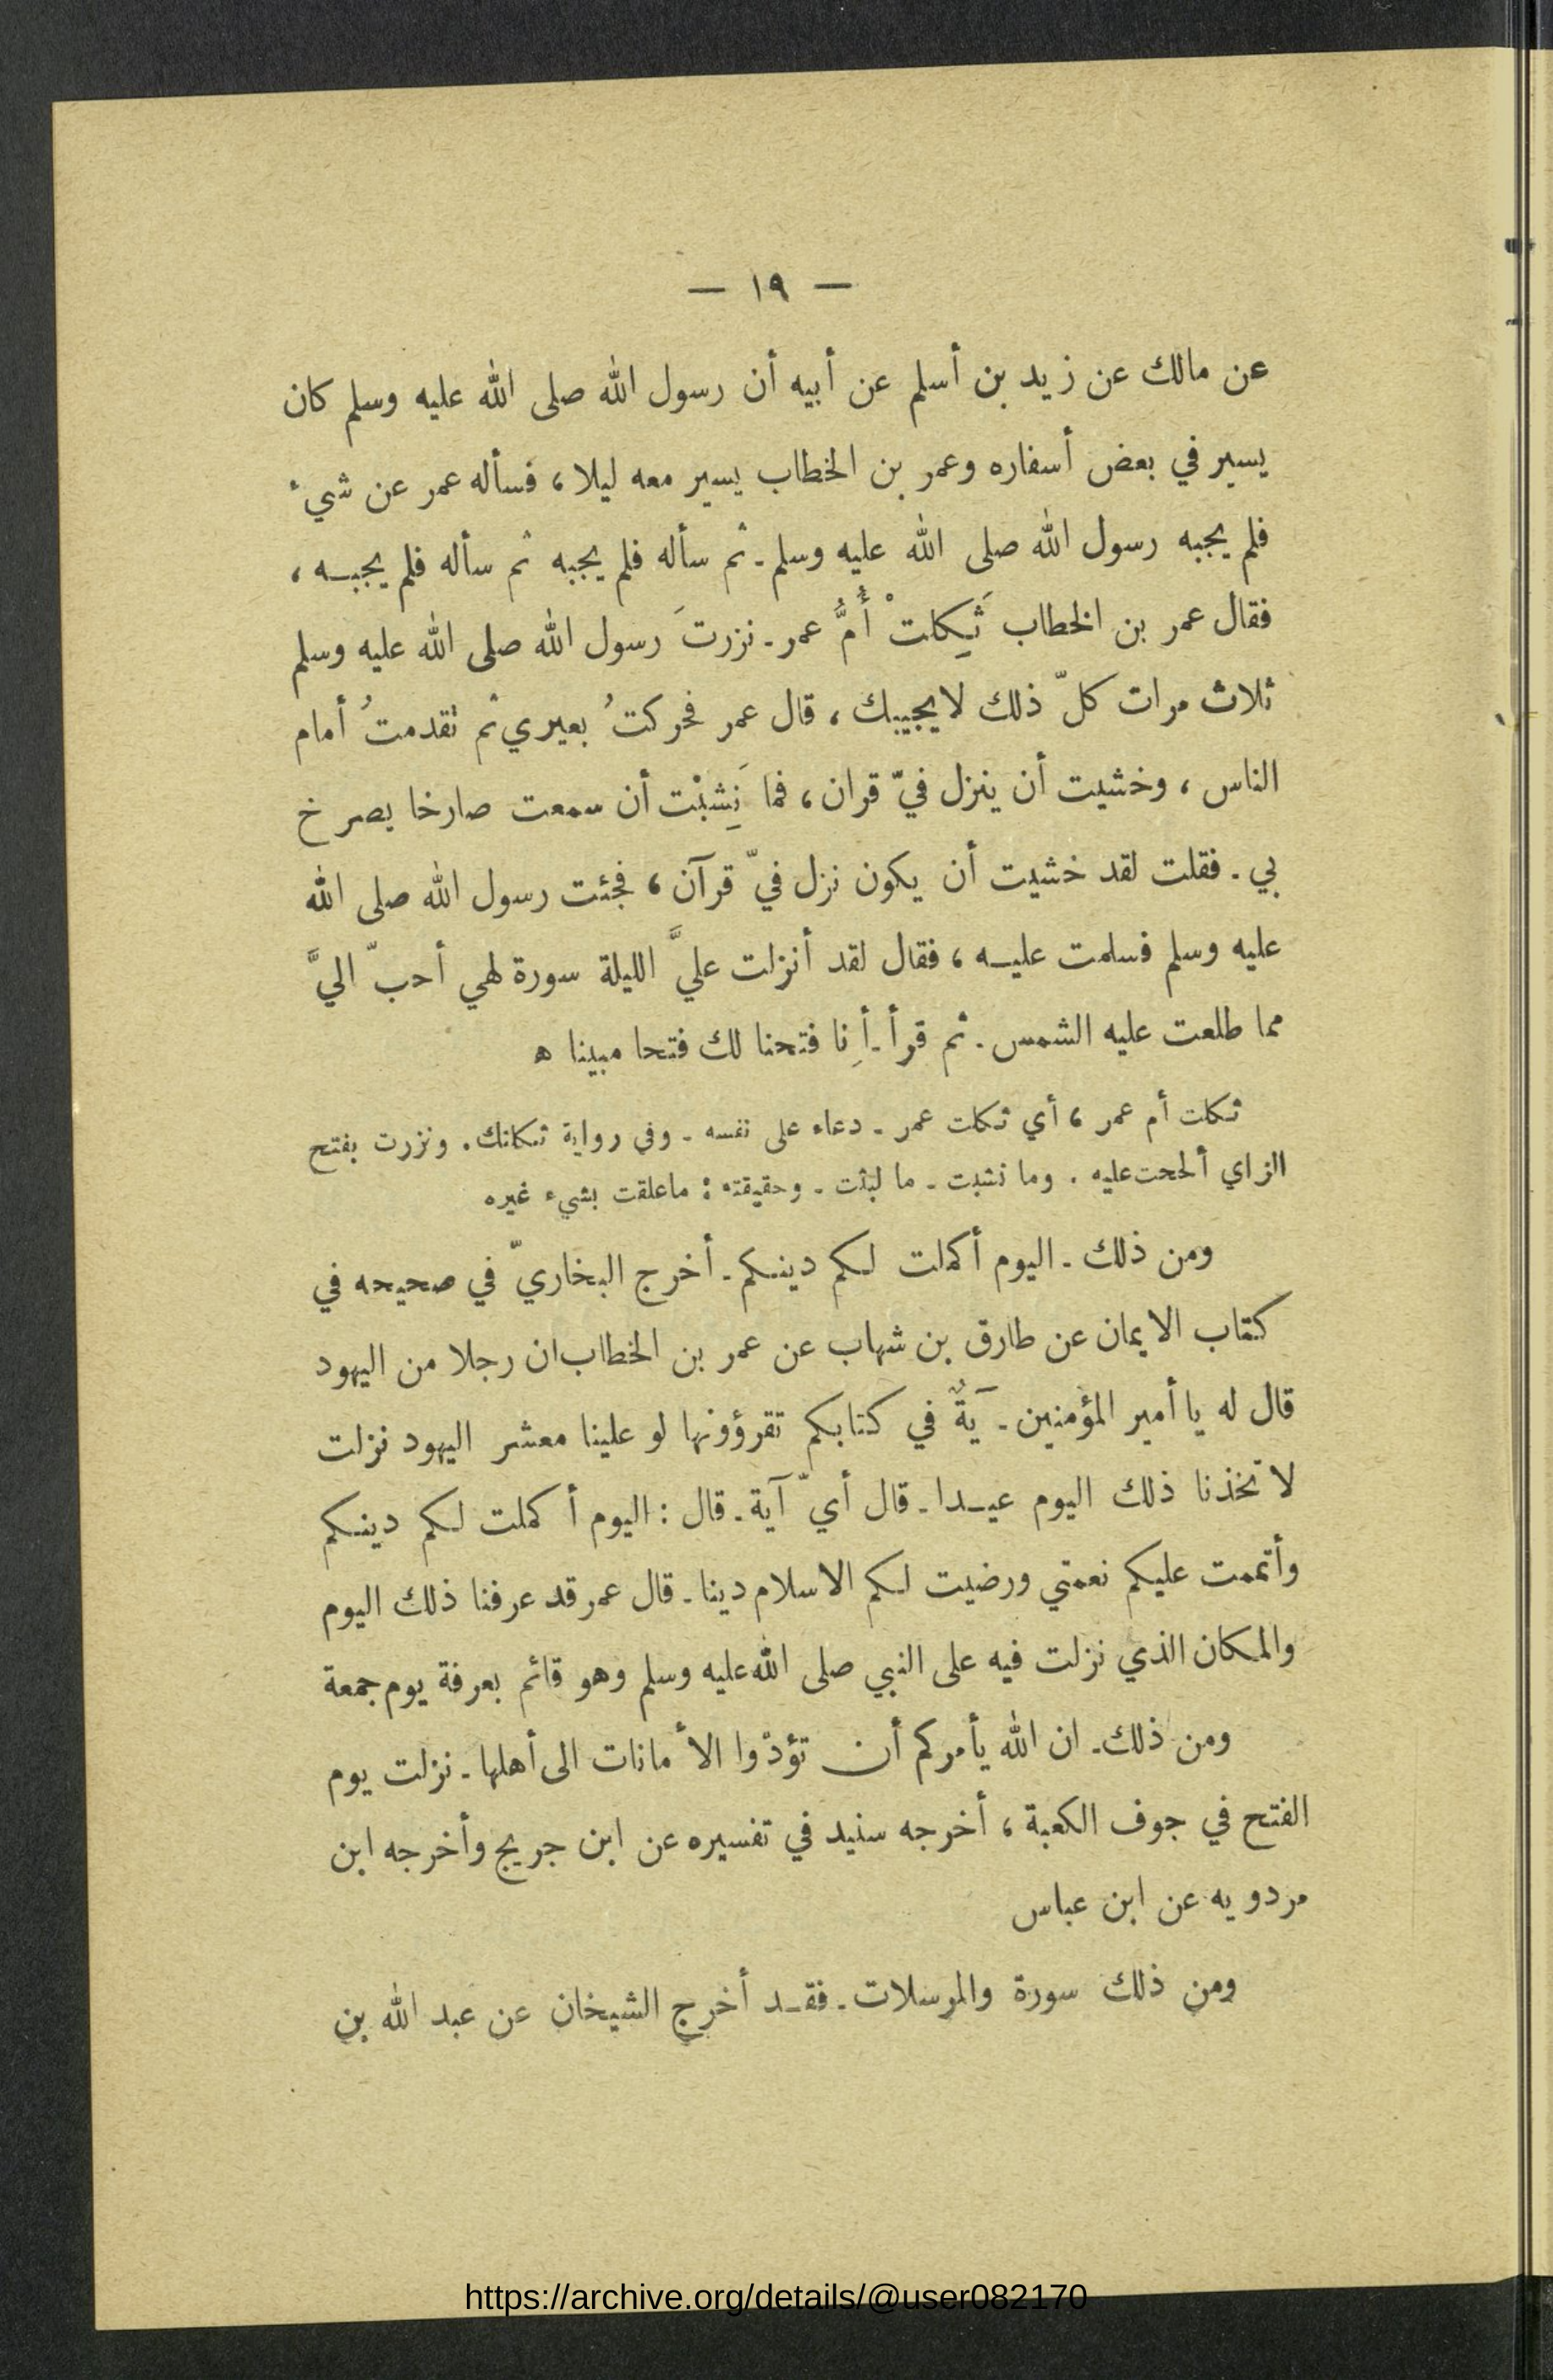 — ١٩ —
عن مالك عن زيد بن أسلم عن أبيه أن رسول الله صلى الله عليه وسلم كان
يسير في بعض أسفاره وعمر بن الخطاب يسير معه ليلا، فسأله عمر عن شيء
فلم يجبه رسول الله صلى الله عليه وسلم ـ ثم سأله فلم يجبه ثم سأله فلم يجبـه،
فقال عمر بن الخطاب ثَكِلتْ أُمُّ عمر ـ نزرتَ رسول الله صلى الله عليه وسلم
ثلاث مرات كلّ ذلك لايجيبك، قال عمر فحركتُ بعيري ثم تقدمتُ أمام
الناس، وخشيت أن ينزل فيّ قران، فما نَشِبْت أن سمعت صارخا يصرخ
بي ـ فقلت لقد خشيت أن يكون نزل فيّ قرآن، فجئت رسول الله صلى الله
عليه وسلم فسلمت عليـه، فقال لقد أنزلت عليَّ الليلة سورة لهي أحبّ اليَّ
مما طلعت عليه الشمس ـ ثم قرأ ـ أِنا فتحنا لك فتحا مبينا ه
ثكلت أم عمر، أي ثكلت عمر ـ دعاء على نفسه ـ وفي رواية ثكلتك. ونزرت بفتح
الزاي ألححت عليه . وما نشبت ـ ما لبثت ـ وحقيقته : ماعلقت بشيء غيره
ومن ذلك ـ اليوم أكملت لكم دينكم ـ أخرج البخاريّ في صحيحه في
كتاب الايمان عن طارق بن شهاب عن عمر بن الخطاب ان رجلا من اليهود
قال له يا أمير المؤمنين ـ آيةٌ في كتابكم تقرؤونها لو علينا معشر اليهود نزلت
لاتخذنا ذلك اليوم عيـدا ـ قال أيّ آية ـ قال : اليوم أكملت لكم دينكم
وأتممت عليكم نعمتي ورضيت لكم الاسلام دينا ـ قال عمر قد عرفنا ذلك اليوم
والمكان الذي نزلت فيه على النبي صلى الله عليه وسلم وهو قائم بعرفة يوم جمعة
ومن ذلك ـ ان الله يأمركم أن تؤدّوا الأمانات الى أهلها ـ نزلت يوم
الفتح في جوف الكعبة، أخرجه سنيد في تفسيره عن ابن جريج وأخرجه ابن
مردويه عن ابن عباس
ومن ذلك سورة والمرسلات ـ فقـد أخرج الشيخان عن عبد الله بن
https://archive.org/details/@user082170